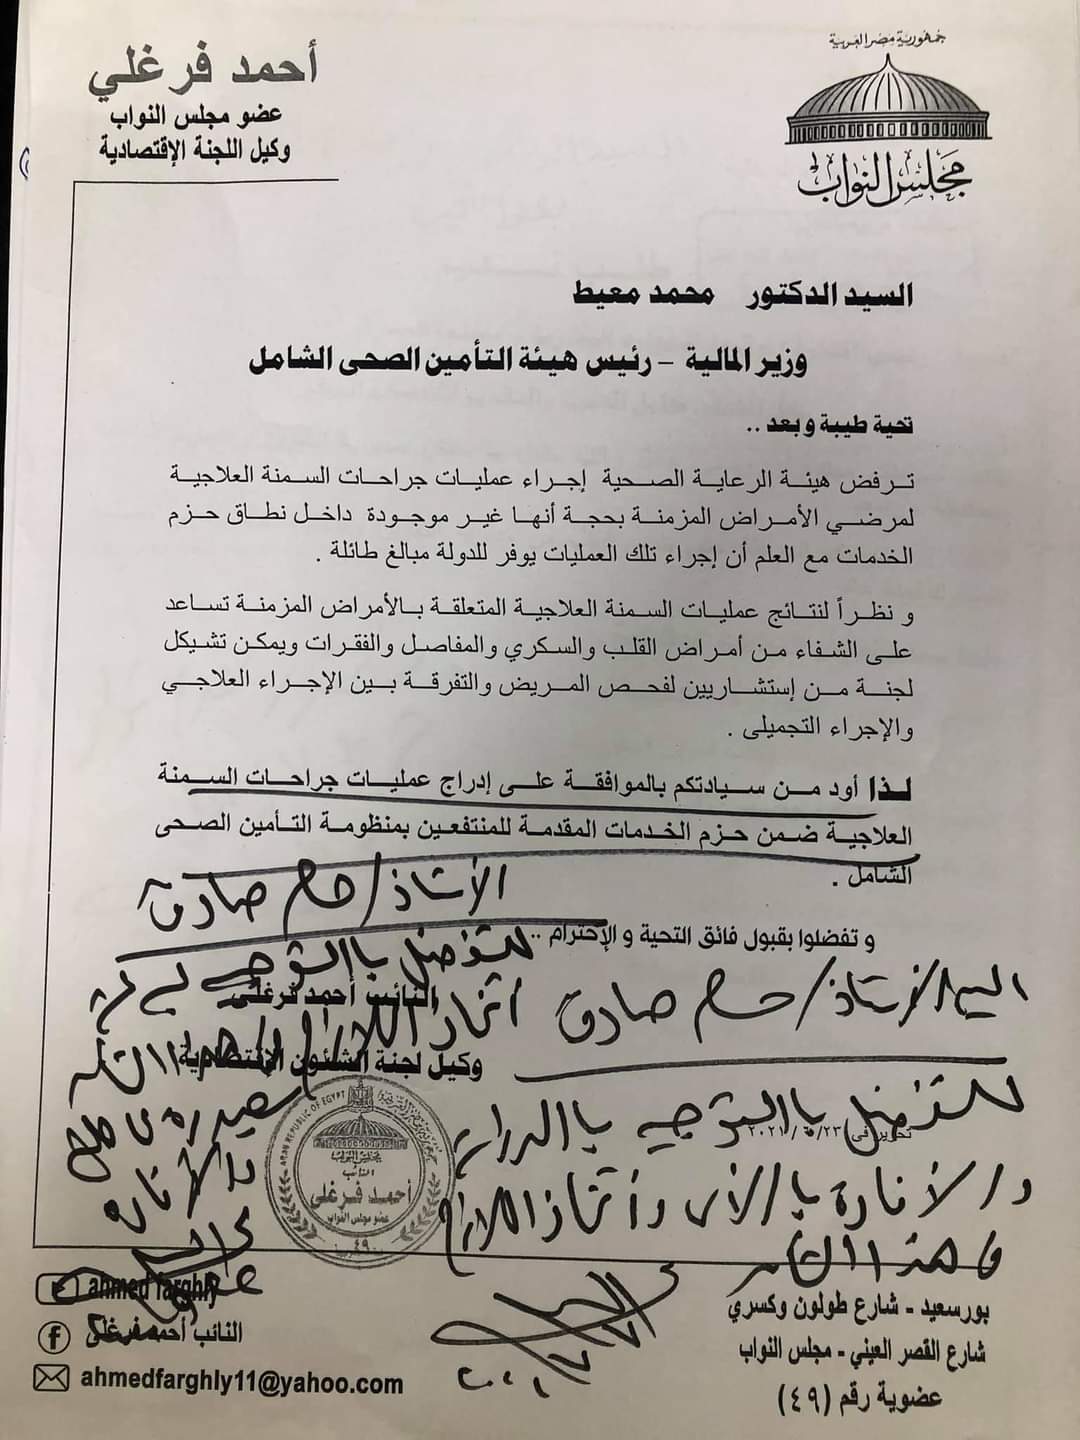 جمهورية مصر العربية
مجلس النواب
أحمد فرغلي
عضو مجلس النواب
وكيل اللجنة الإقتصادية
السيد الدكتور محمد معيط
وزير المالية - رئيس هيئة التأمين الصحى الشامل
تحية طيبة وبعد ..
ترفض هيئة الرعاية الصحية إجراء عمليات جراحات السمنة العلاجية
لمرضي الأمراض المزمنة بحجة أنها غير موجودة داخل نطاق حزم
الخدمات مع العلم أن إجراء تلك العمليات يوفر للدولة مبالغ طائلة .
و نظراً لنتائج عمليات السمنة العلاجية المتعلقة بالأمراض المزمنة تساعد
على الشفاء من أمراض القلب والسكري والمفاصل والفقرات ويمكن تشيكل
لجنة من إستشاريين لفحص المريض والتفرقة بين الإجراء العلاجي
والإجراء التجميلى .
لذا أود من سيادتكم بالموافقة على إدراج عمليات جراحات السمنة
العلاجية ضمن حزم الخدمات المقدمة للمنتفعين بمنظومة التأمين الصحى
الشامل .
الأستاذ / حسام صادق
و تفضلوا بقبول فائق التحية و الإحترام ..
للتفضل بالتوجيه
النائب أحمد فرغلى
السيد الأستاذ / حسام صادق
وكيل لجنة الشئون الإقتصادية
للتفضل بالتوجيه بالدراسة
تحرير فى ٢٠٢١/
والأفادة بالرأى وأتخاذ اللازم
فى هذا الشأن
ARAB REPUBLIC OF EGYPT
مجلس النواب
النائب
أحمد فرغلى
عضو مجلس النواب
٤٩
ahmed farghly
النائب أحمد فرغلى
ahmedfarghly11@yahoo.com
بورسعيد - شارع طولون وكسري
شارع القصر العيني - مجلس النواب
عضوية رقم (٤٩)